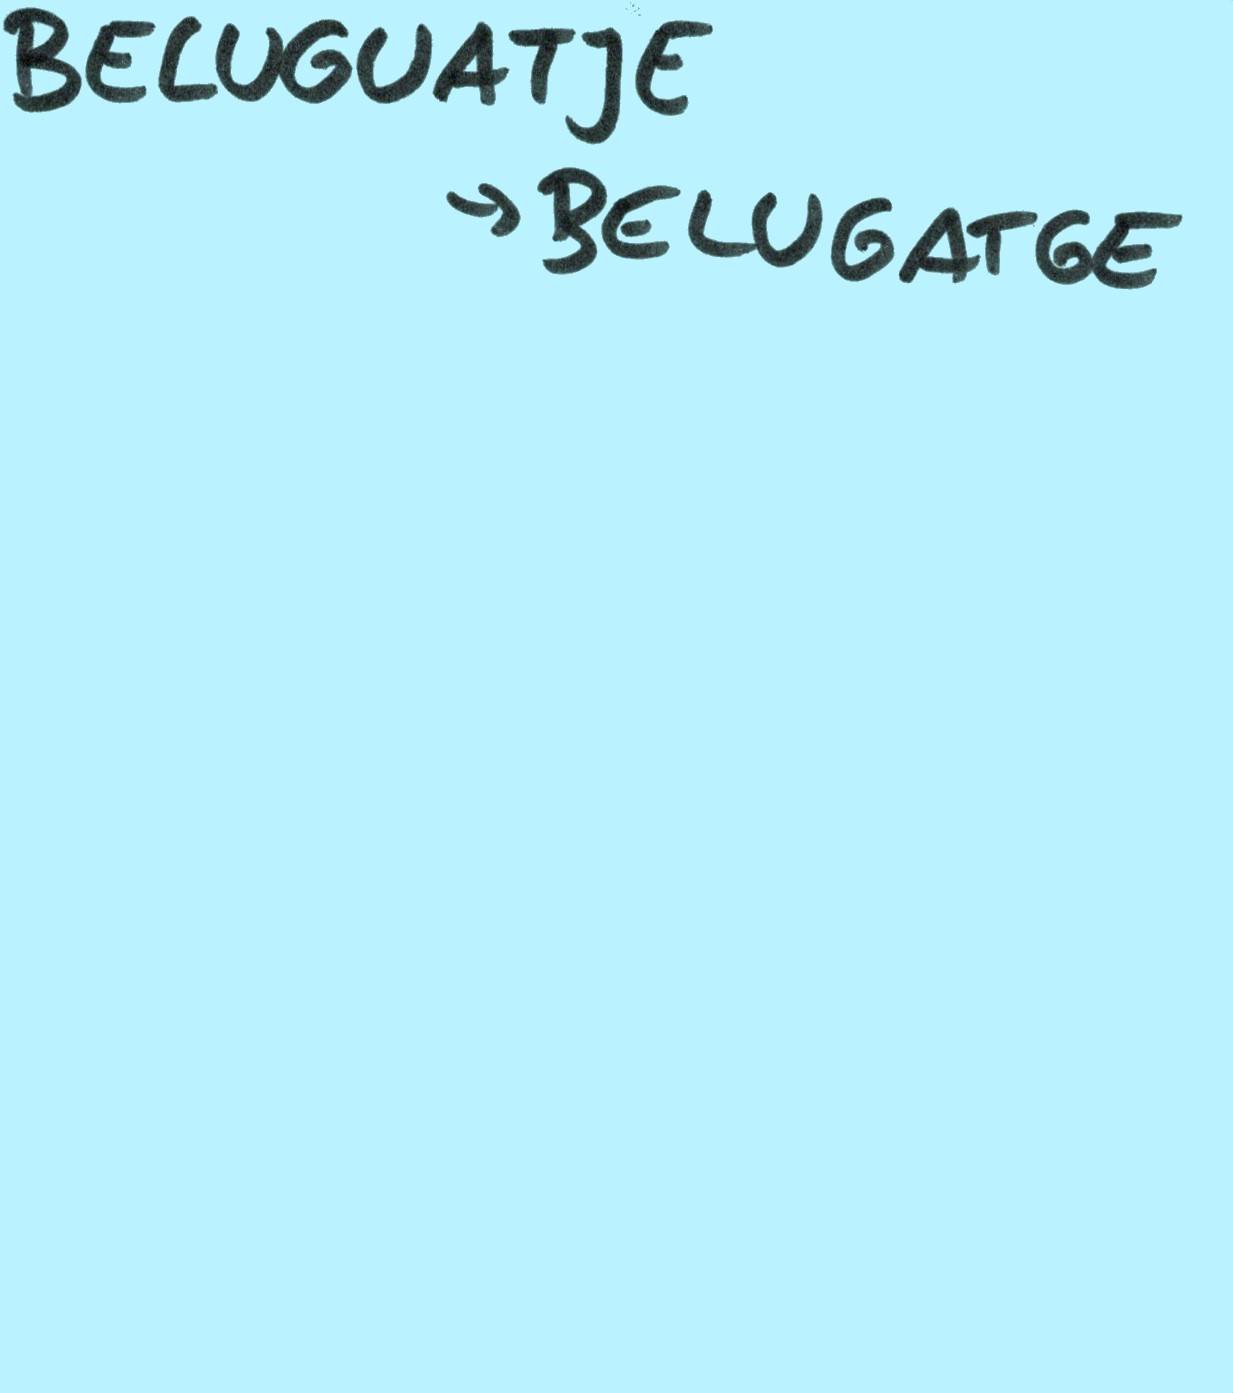 BELUGUATJE
→ BELUGATGE